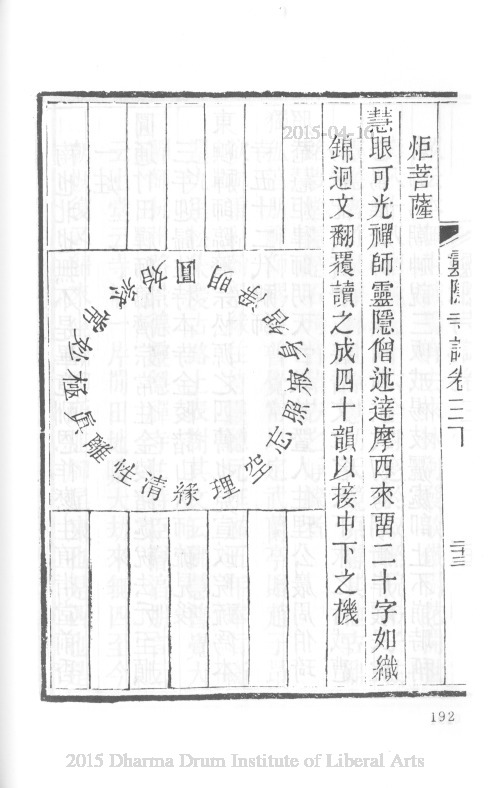 靈隱寺誌卷三下
二十三
炬菩薩
慧眼可光禪師靈隱僧述達摩西來畱二十字如織
錦迴文翻覆讀之成四十韻以接中下之機
圓明淨身寂照志空理緣清性離貞極妙常始
192
2015-04-16
2015 Dharma Drum Institute of Liberal Arts